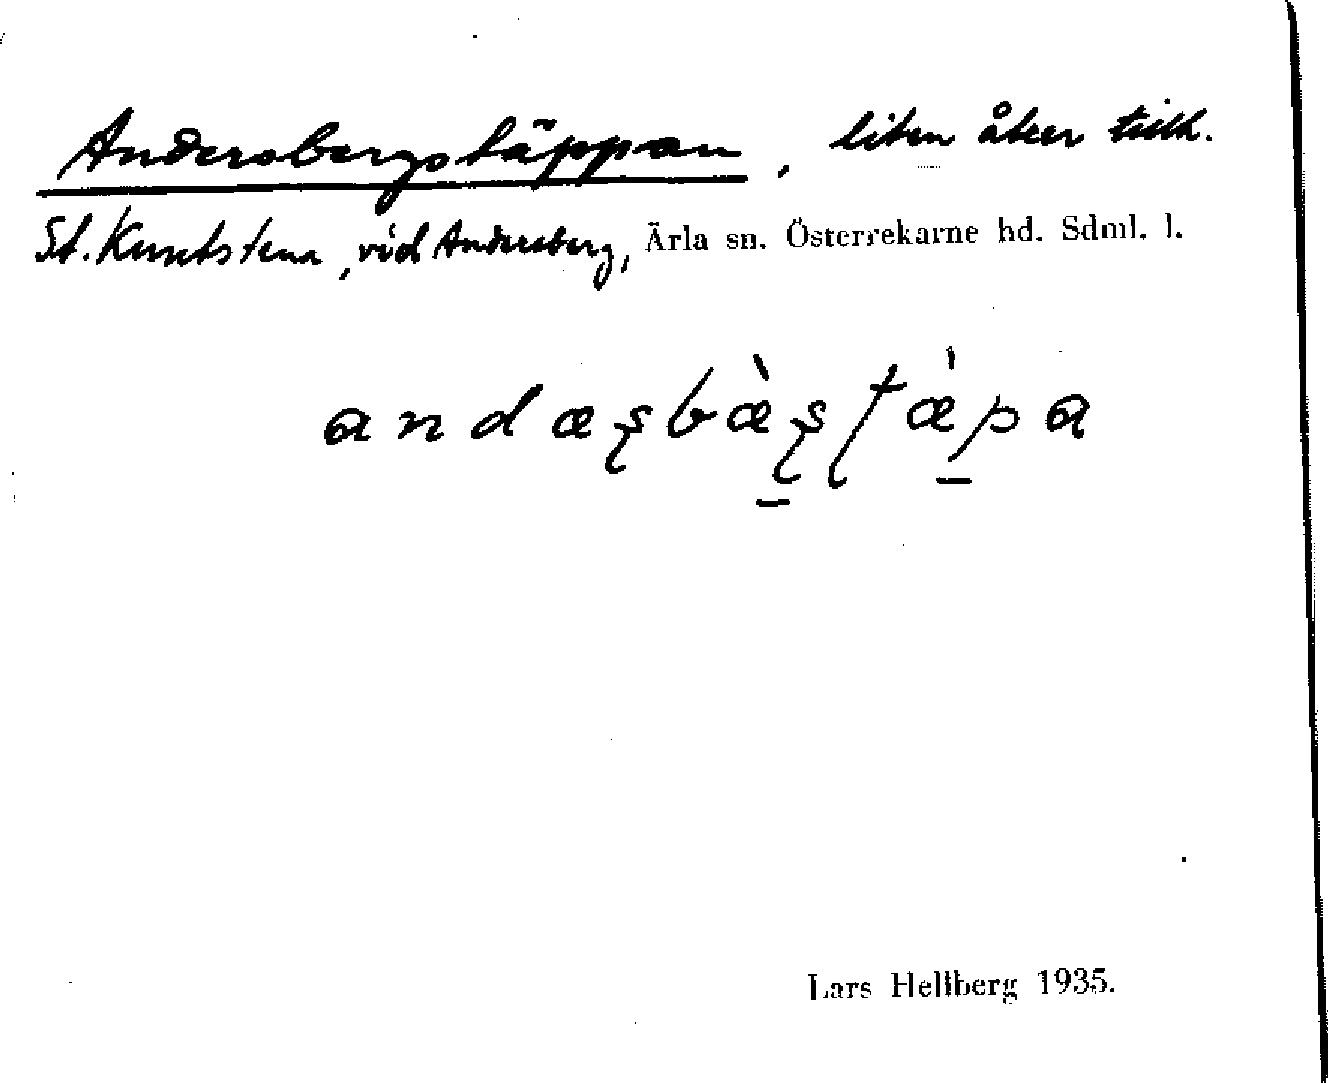 Andersbergstäppan, liten åker tillh.
St. Kunstena, vid Andersberg, Ärla sn. Österrekarne hd. Sdml. l.
andæʂbæ̀ʂtæ̀pa
Lars Hellberg 1935.